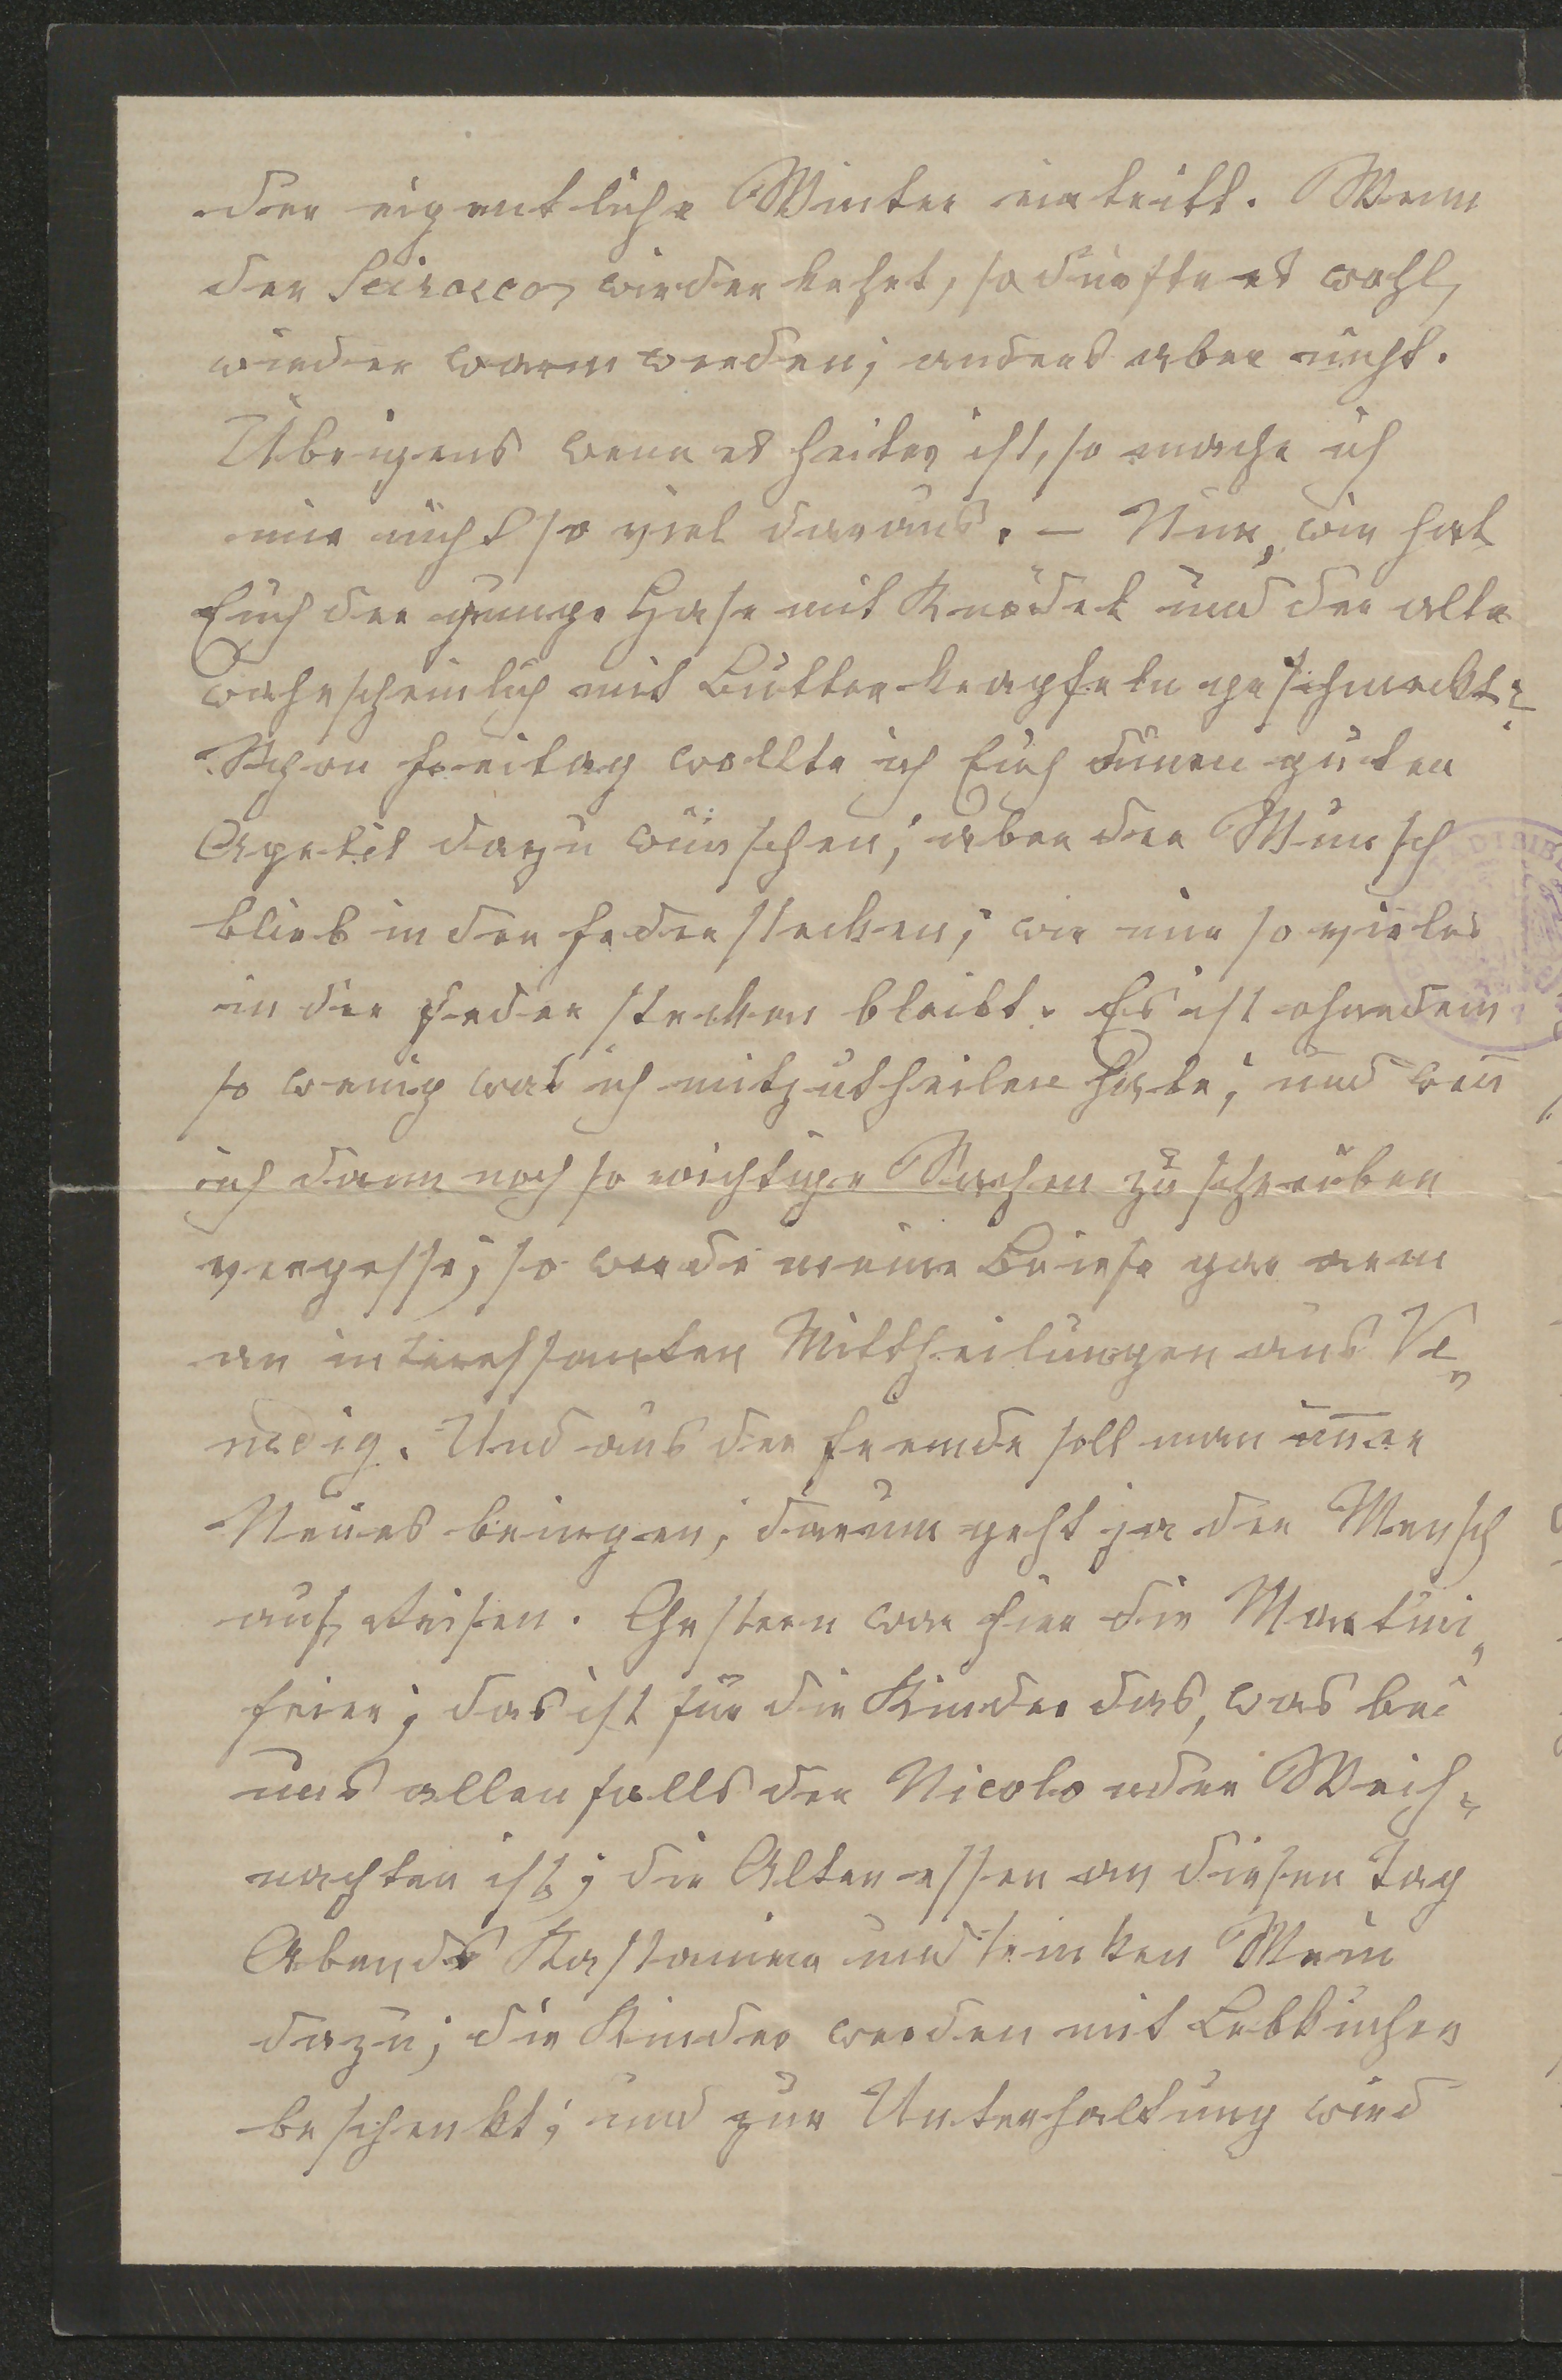 der eigentliche Winter eintritt. Wenn
der Scirocco wiederkehrt, so dürfte es wohl
wieder warm werden; anders aber nicht.
Übrigens wenn es heiter ist, so mache ich
mir nicht so viel daraus. – Nun, wie hat
Euch der junge Hase mit Knödel und der alte
wahrscheinlich mit Butterkrapfeln geschmeckt?
Schon Freitag wollte ich Euch einen guten
Apetit dazu wünschen; aber der Wunsch
blieb in der Feder stecken; wie mir so vieles
in der Feder stecken bleibt. Es ist ohnedem
so wenig was ich mitzutheilen habe; und weñ
ich dann noch so wichtige Sachen zu schreiben
vergesse; so werde meine Briefe gar arm
an interessanten Mittheilungen aus Ve„
nedig. Und aus der Fremde soll man im̅er
Neues bringen; darum geht ja der Mensch
auf Reisen. Gestern war hier die Martini„
feier; das ist für die Kinder das, was bei
uns allenfalls der Nicolo oder Weih=
nachten ist; die Alten essen an diesen Tag
Abends Kastanien und trinken Wein
dazu; die Kinder werden mit Lebkuchen
beschenkt; und zur Unterhaltung wird